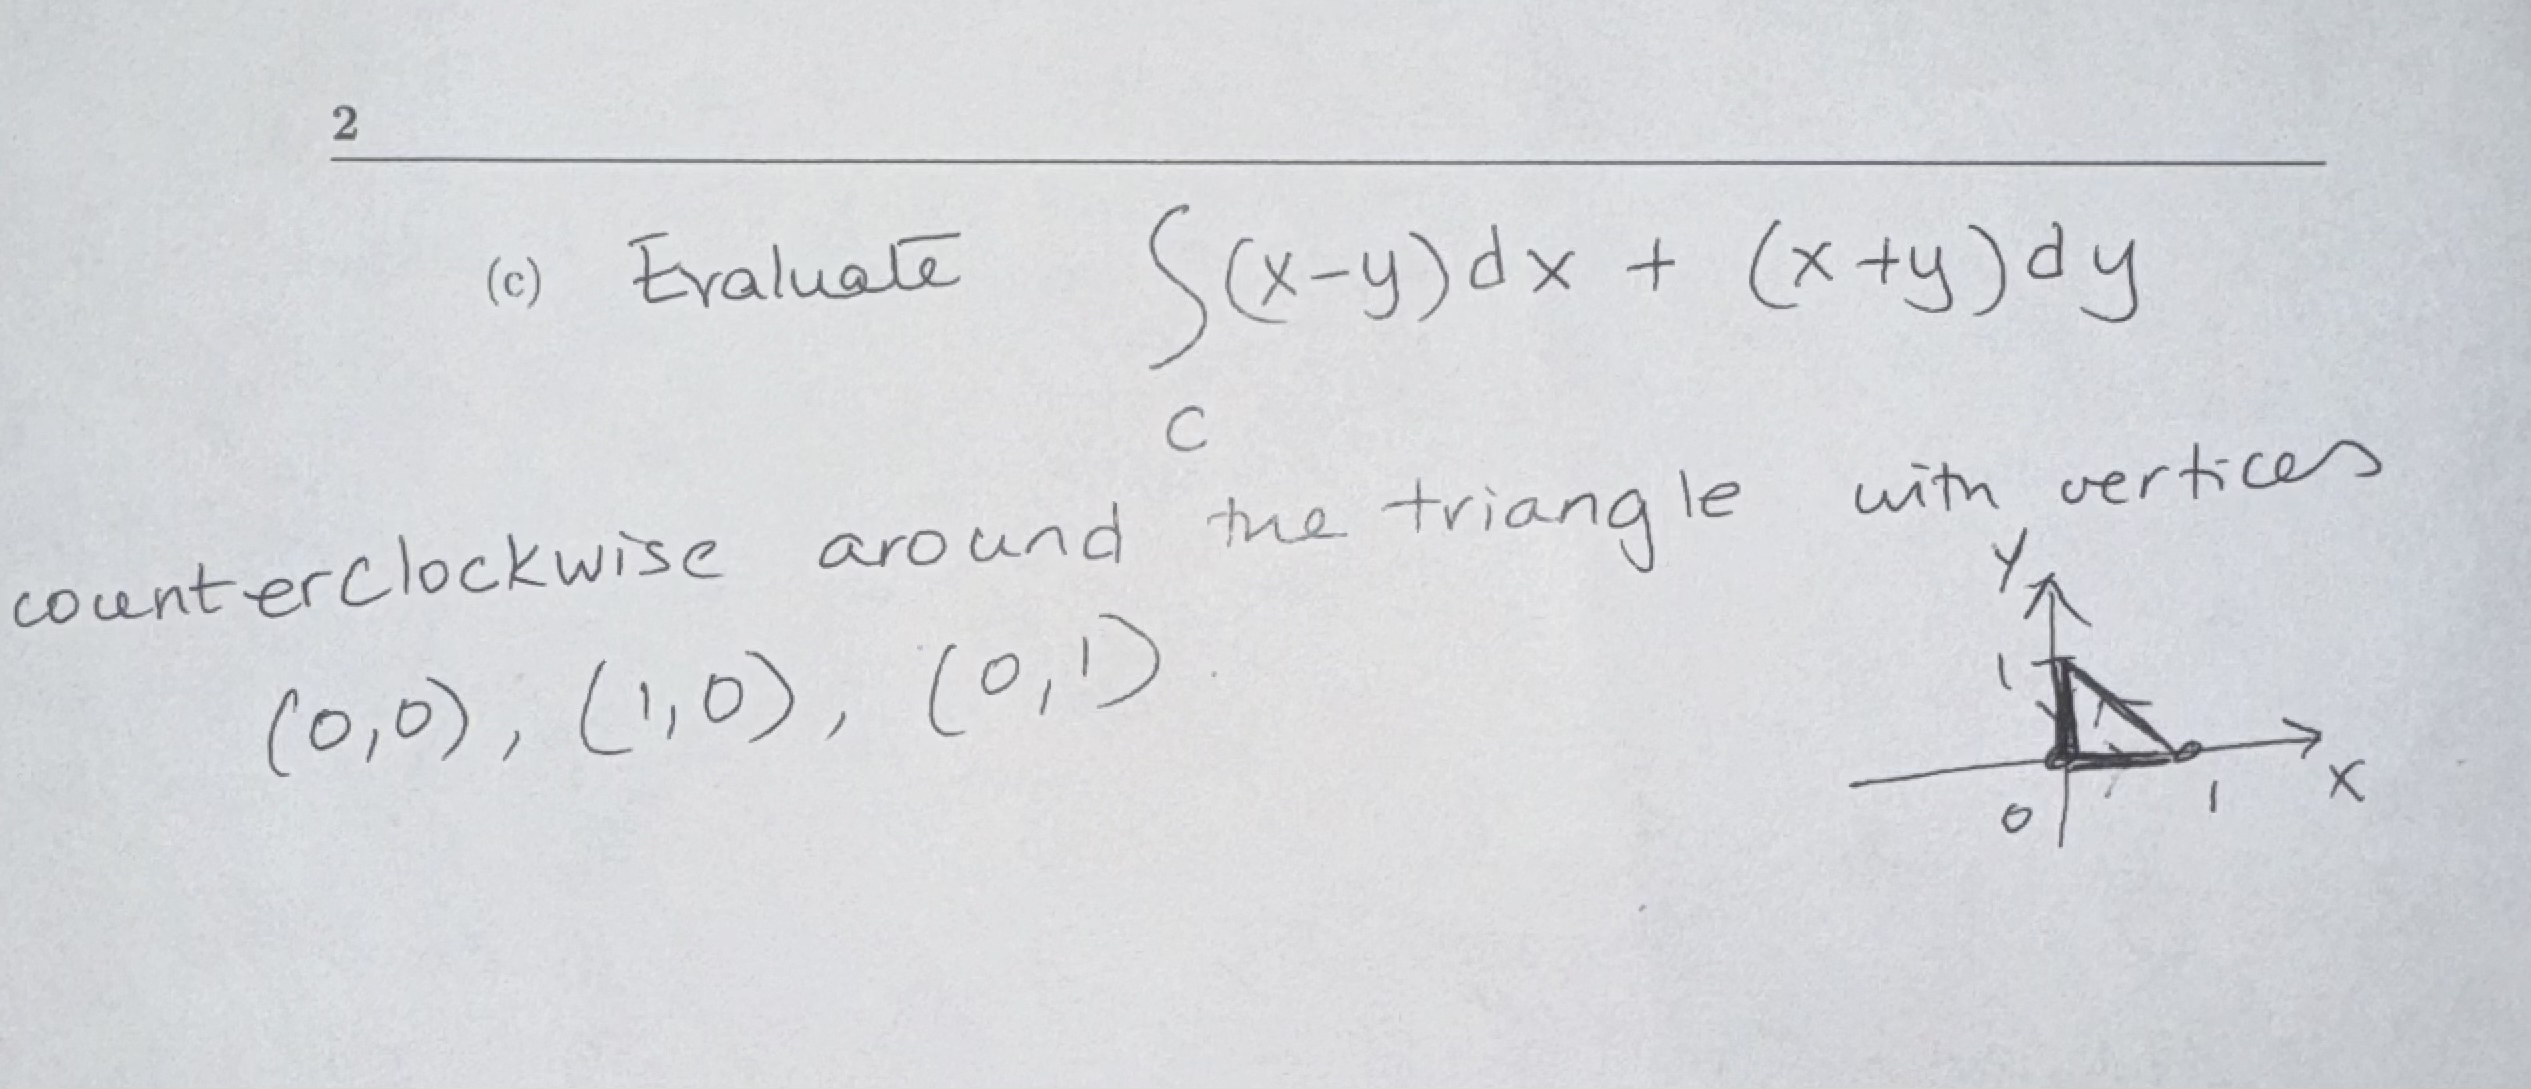 2
(c) Evaluate ∫(x-y)dx + (x+y)dy
C
counterclockwise around the triangle with vertices
(0,0), (1,0), (0,1).
y
1
0 1 x